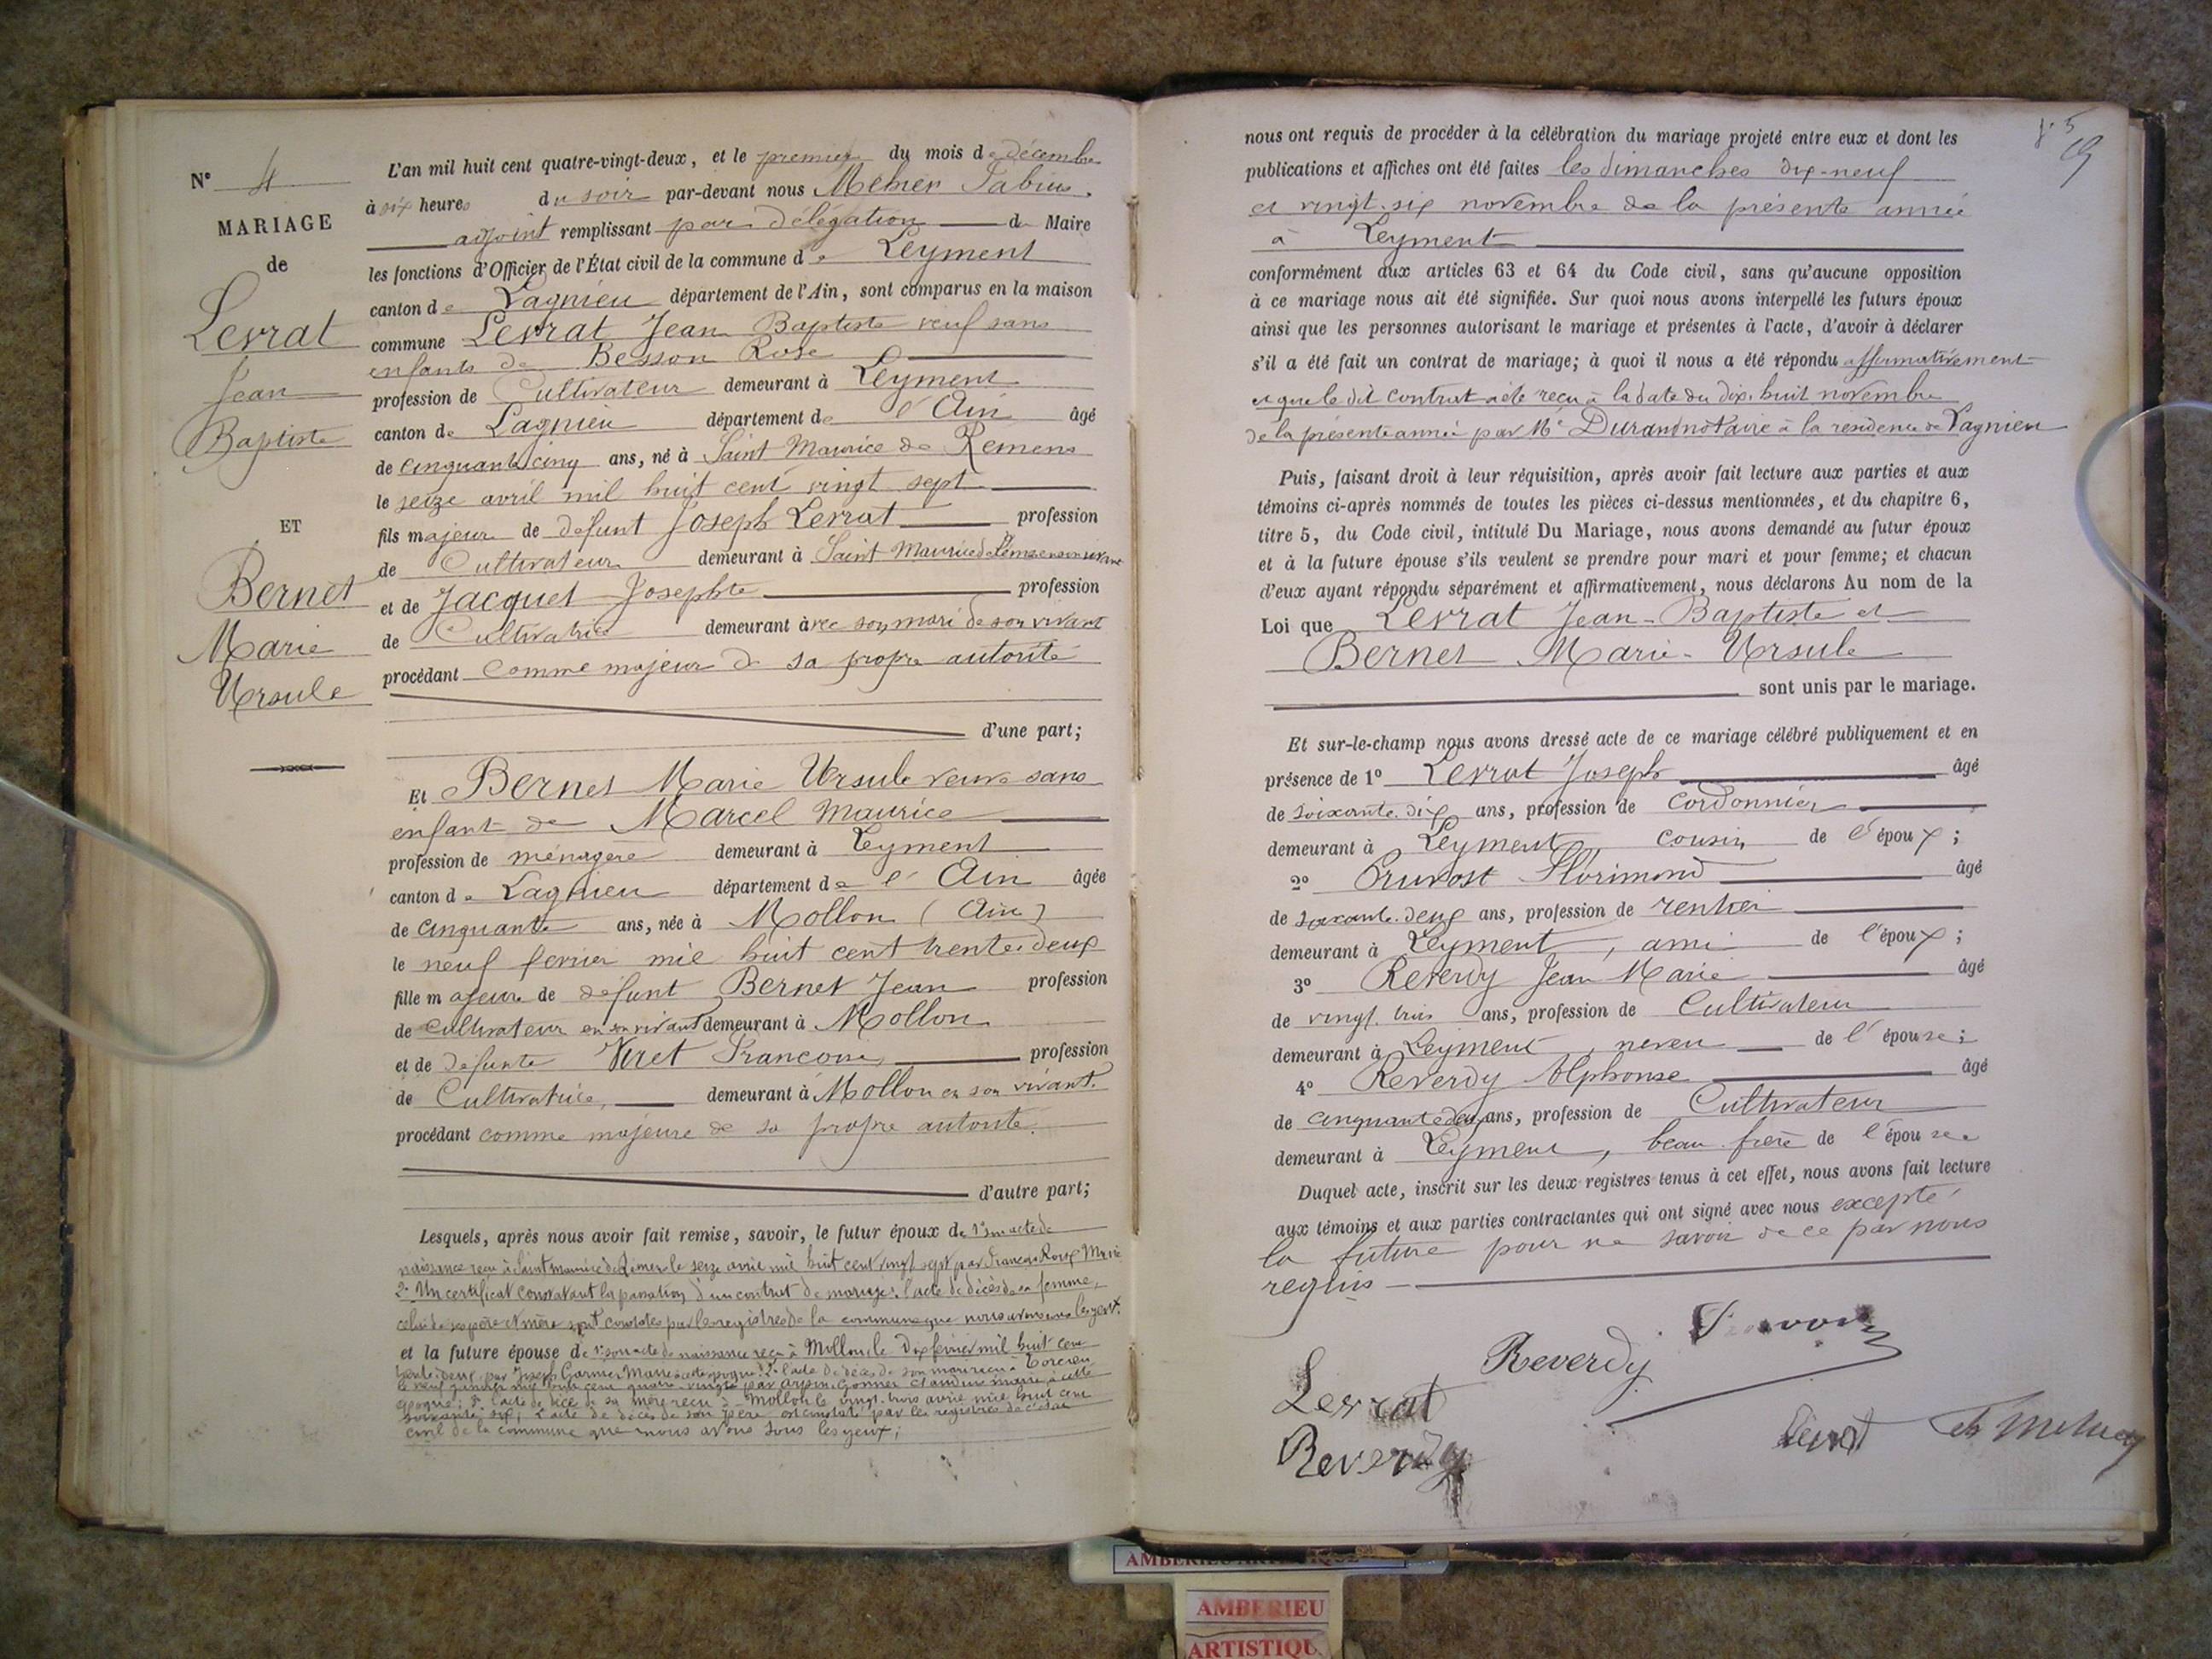 N° 4
MARIAGE
de
Levrat
Jean
Baptiste
ET
Bernet
Marie
Ursule
L'an mil huit cent quatre-vingt-deux, et le premier du mois de décembre
à six heures du soir par-devant nous Mehier Fabius
adjoint remplissant par délégation du Maire
les fonctions d'Officier de l'État civil de la commune de Leyment
canton de Lagnieu département de l'Ain, sont comparus en la maison
commune Levrat Jean Baptiste veuf sans
enfants de Besson Rose
profession de Cultivateur demeurant à Leyment
canton de Lagnieu département de l'Ain âgé
de cinquante cinq ans, né à Saint Maurice de Remens
le seize avril mil huit cent vingt sept
fils majeur de defunt Joseph Levrat profession
de Cultivateur demeurant à Saint Maurice de Rémens en son vivant
et de Jacquet Josephte profession
de Cultivatrice demeurant avec son mari de son vivant
procédant comme majeur de sa propre autorité
d'une part;
Et Bernet Marie Ursule veuve sans
enfant de Marcel Maurice
profession de ménagère demeurant à Leyment
canton de Lagnieu département de l'Ain âgée
de cinquante ans, née à Mollon (Ain)
le neuf fevrier mil huit cent trente-deux
fille majeure de défunt Bernet Jean profession
de cultivateur en son vivant demeurant à Mollon
et de défunte Viret Francoise profession
de Cultivatrice, demeurant à Mollon en son vivant.
procédant comme majeure de sa propre autorité.
d'autre part;
Lesquels, après nous avoir fait remise, savoir, le futur époux de 1° son acte de
naissance reçu à Saint maurice de Rémens le seize avril mil huit cent vingt sept par François Roux Maire
2° Un certificat constatant la passation d'un contrat de mariage: l'acte de décès de sa femme,
celui de ses père et mère sont constatés par les registres de la commune que nous avons sous les yeux.
et la future épouse de 1° son acte de naissance reçu à Mollon le dix février mil huit cent
trente-deux par Joseph Garnier Maire à cette époque: 2° l'acte de décès de son mari reçu à Torcieu
le neuf janvier mil huit cent quatre-vingts par Claudius maire à cette
époque; 3° l'acte de décè de sa mère reçu à Mollon le vingt-trois avril mil huit cent
soixante-six; l'acte de décès de son père est constaté par les registres de l'état
civil de la commune que nous avons sous les yeux;
nous ont requis de procéder à la célébration du mariage projeté entre eux et dont les
publications et affiches ont été faites les dimanches dix-neuf
et vingt-six novembre de la présente année
à Leyment
conformément aux articles 63 et 64 du Code civil, sans qu'aucune opposition
à ce mariage nous ait été signifiée. Sur quoi nous avons interpellé les futurs époux
ainsi que les personnes autorisant le mariage et présentes à l'acte, d'avoir à déclarer
s'il a été fait un contrat de mariage; à quoi il nous a été répondu affirmativement
et que le dit contrat a été reçu à la date du dix-huit novembre
de la présente année par Me Durand notaire à la résidence de Lagnieu
Puis, faisant droit à leur réquisition, après avoir fait lecture aux parties et aux
témoins ci-après nommés de toutes les pièces ci-dessus mentionnées, et du chapitre 6,
titre 5, du Code civil, intitulé Du Mariage, nous avons demandé au futur époux
et à la future épouse s'ils veulent se prendre pour mari et pour femme; et chacun
d'eux ayant répondu séparément et affirmativement, nous déclarons Au nom de la
Loi que Levrat Jean-Baptiste et
Bernet Marie-Ursule
sont unis par le mariage.
Et sur-le-champ nous avons dressé acte de ce mariage célébré publiquement et en
présence de 1° Levrat Joseph âgé
de soixante-dix ans, profession de cordonnier
demeurant à Leyment, cousin de l'époux;
2° Pruvost Florimond âgé
de soixante-deux ans, profession de rentier
demeurant à Leyment, ami de l'époux;
3° Reverdy Jean Marie âgé
de vingt-trois ans, profession de Cultivateur
demeurant à Leyment, neveu de l'épouse;
4° Reverdy Alphonse âgé
de cinquante deux ans, profession de Cultivateur
demeurant à Leyment, beau-frère de l'épouse
Duquel acte, inscrit sur les deux registres tenus à cet effet, nous avons fait lecture
aux témoins et aux parties contractantes qui ont signé avec nous excepté
la future pour ne savoir de ce par nous
requis
Reverdy
Levrat
Reverdy
Levrat
AMBERIEU ARTISTIQUE
AMBERIEU
ARTISTIQU